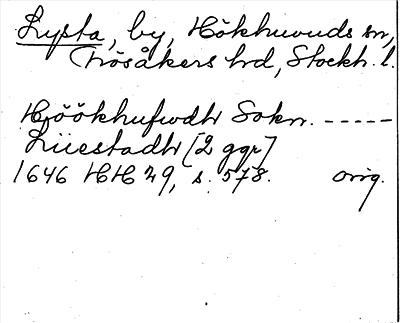 Lysta, by, Hökhuvuds sn,
Frösåkers hd, Stockh. l.
Höökhufwdh Sokn. -----
Liiestadh [2 ggr]
1646 HH 29, s. 578. orig.